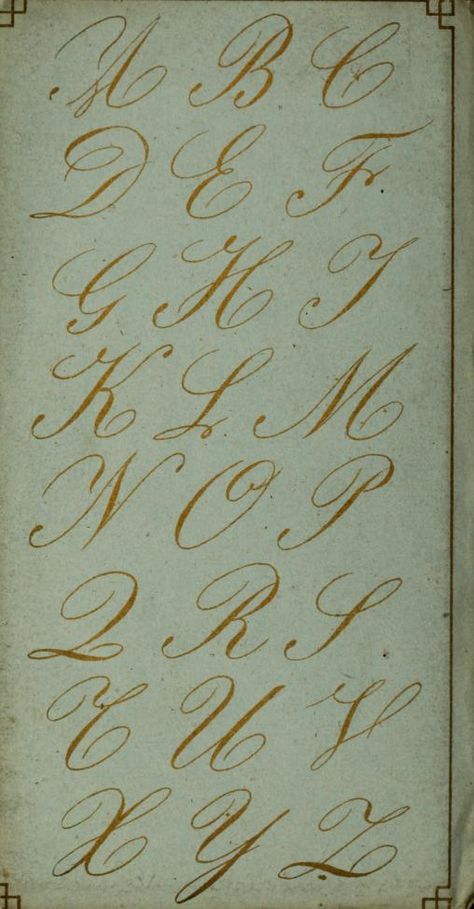 A B C
D E F
G H I
K L M
N O P
Q R S
T U V
X Y Z